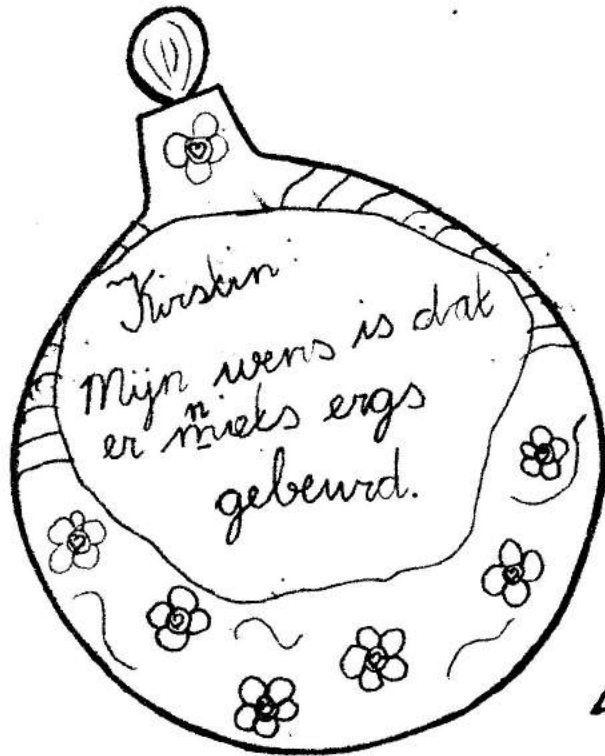 Kirstin:
Mijn wens is dat
er niets ergs
gebeurd.